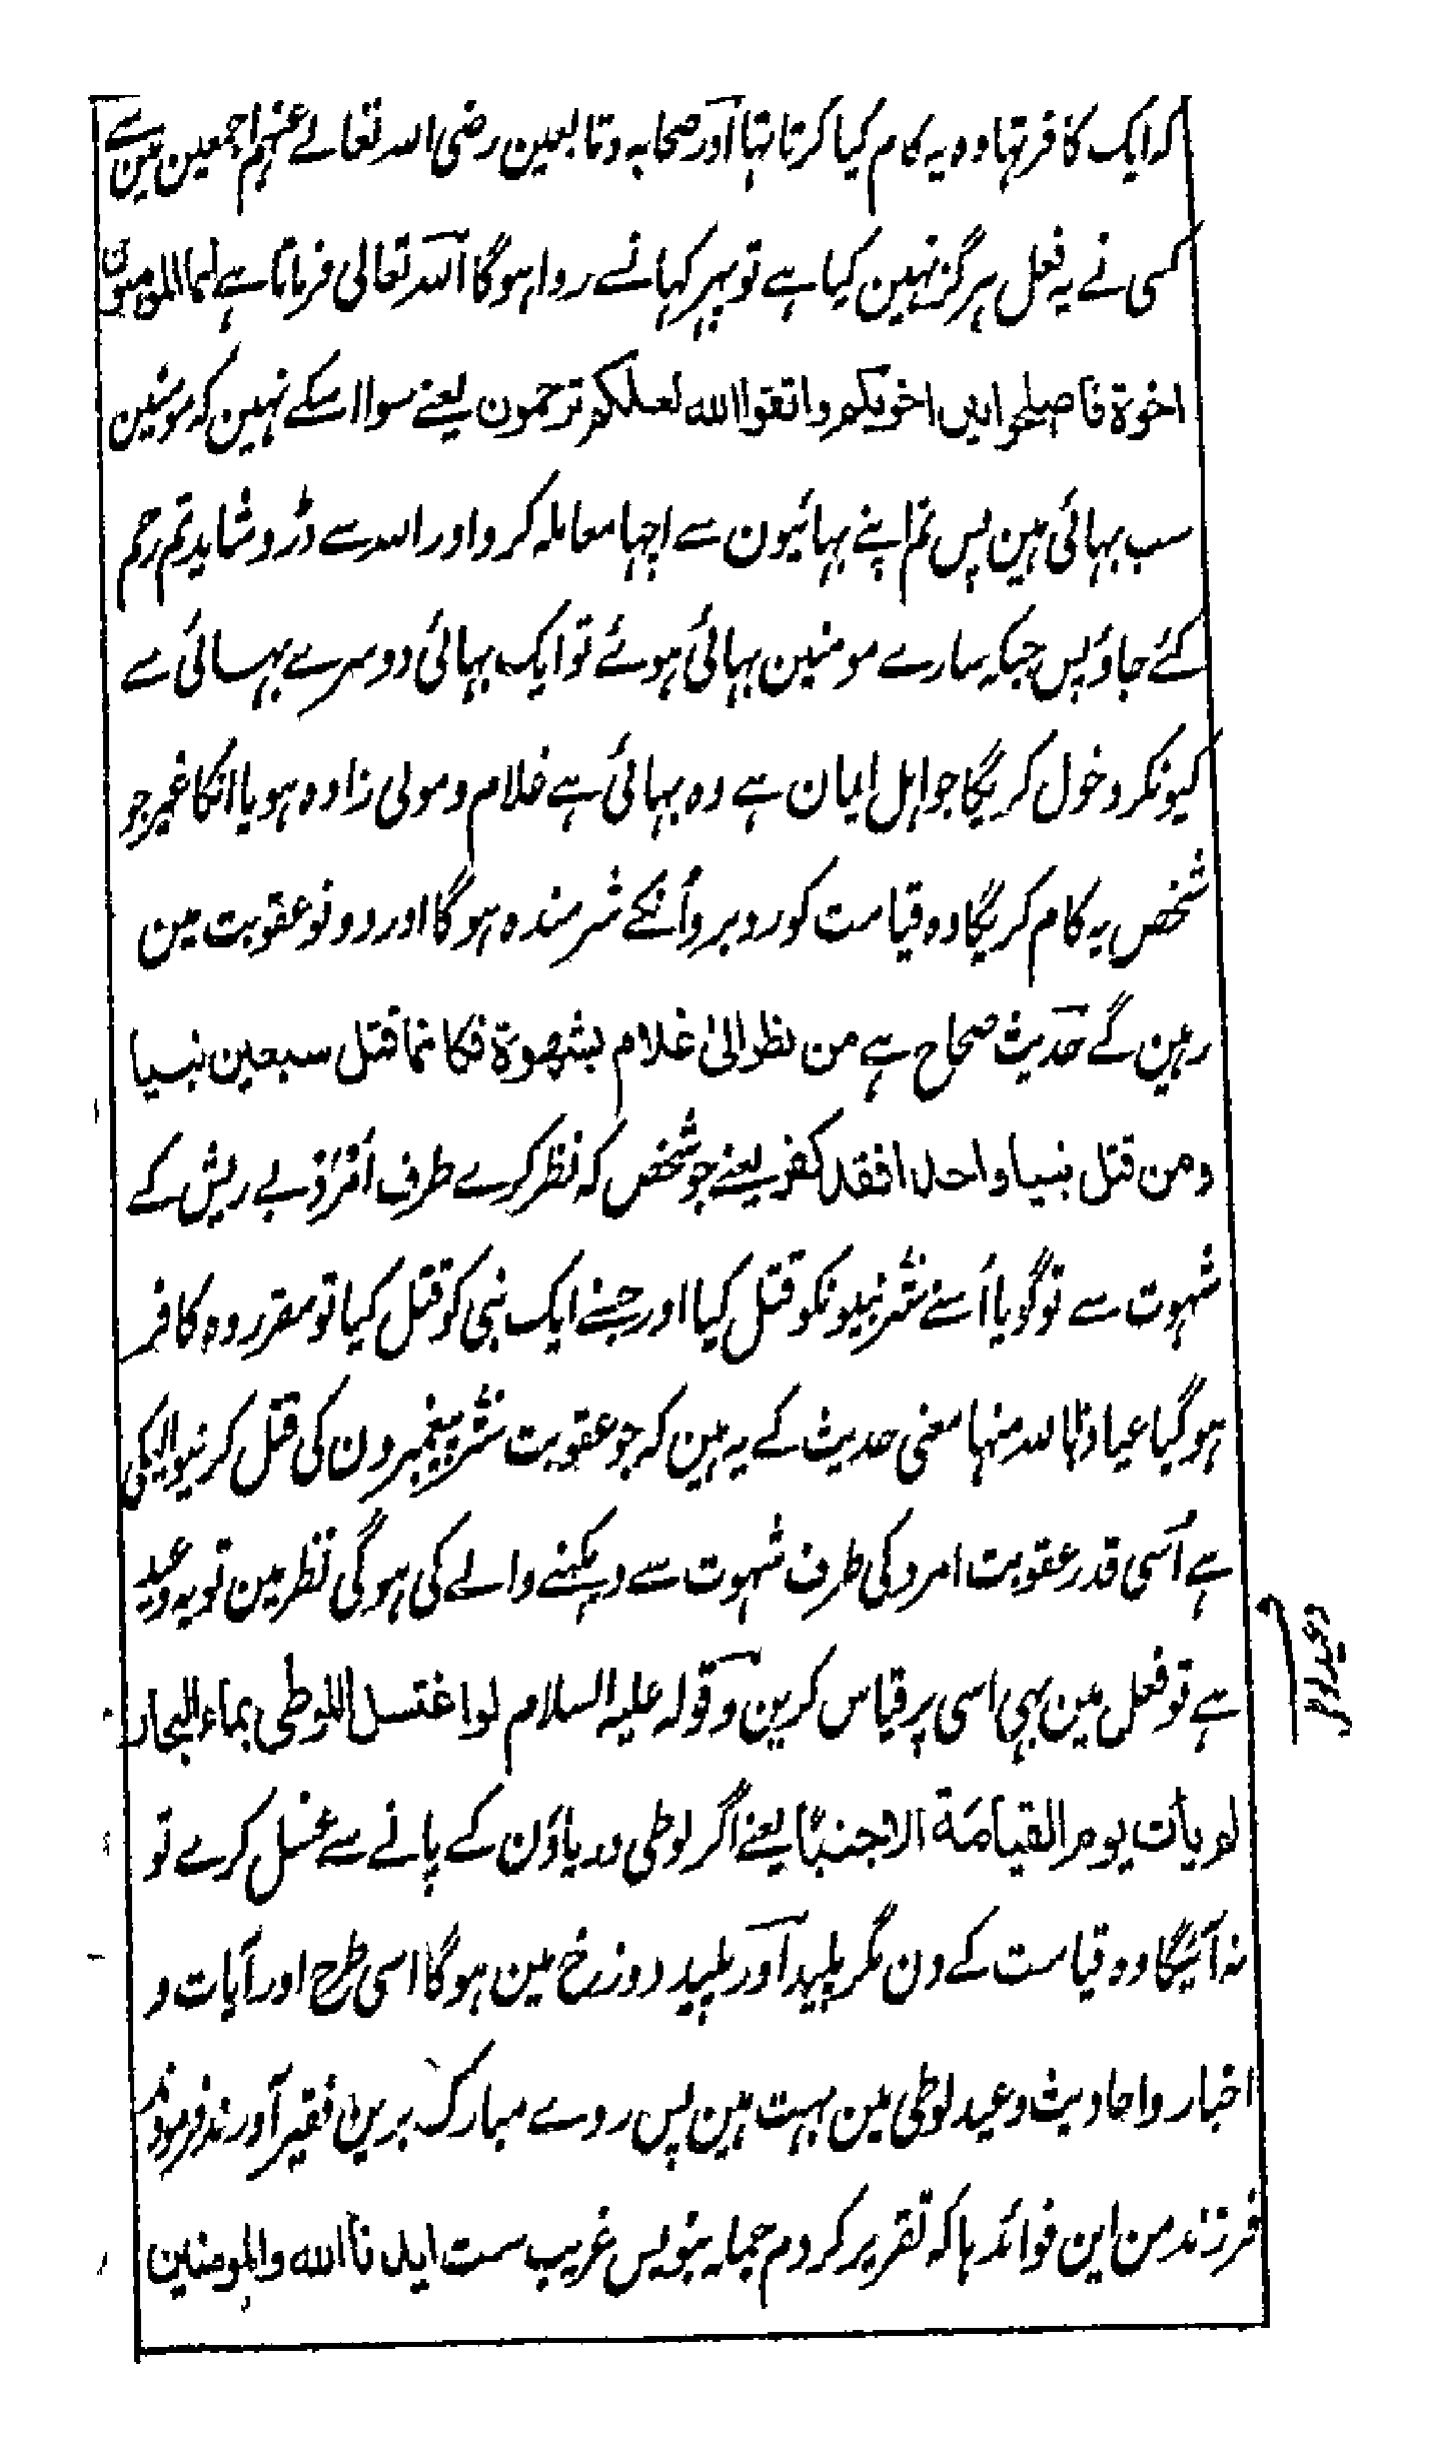 کہ ایک کافر تہا وہ یہ کام کیا کرتا تہا اور صحابہ وتابعین رضی اللہ تعالے عنہم اجمعین مین سے
کسی نے یہ فعل ہرگز نہین کیا ہے تو پہر کہانسے روا ہوگا اللہ تعالی فرماتا ہے انما المومنون
اخوة فاصلحوا بین اخویکم واتقوا الله لعلکم ترحمون یعنے سوا اسکے نہین کہ مومنین
سب بہائی ہین پس تم اپنے بہائیون سے اچہا معاملہ کرو اور اللہ سے ڈرو شاید تم رحم
کئے جاؤ پس جبکہ سارے مومنین بہائی ہوئے تو ایک بہائی دوسرے بہائی سے
کیونکر دخول کریگا جو اہل ایمان ہے وہ بہائی ہے غلام و مولی زادہ ہو یا انکا غیر جو
شخص یہ کام کریگا وہ قیامت کو روبرو اُنکے شرمندہ ہوگا اور دونو عقوبت مین
رہین گے حدیث صحاح ہے من نظر الیٰ غلام بشهوة فکانما قتل سبعین نبیا
ومن قتل نبیا واحدا فقد کفر یعنے جو شخص کہ نظر کرے طرف اَمْرَدْ بے ریش کے
شہوت سے تو گویا اُسنے ستر نبیونکو قتل کیا اور جسنے ایک نبی کو قتل کیا تو مقرر وہ کافر
ہوگیا عیاذا باللہ منہا معنی حدیث کے یہ ہین کہ جو عقوبت ستر پیغمبرون کی قتل کرنیوالیکی
ہے اُسی قدر عقوبت امرد کی طرف شہوت سے دیکہنے والے کی ہوگی نظر مین تو یہ وعید
ہے تو فعل مین بہی اسی پر قیاس کرین وقولہ علیہ السلام لو اغتسل اللوطی بماء البحار
لم یأت یوم القیامة الا جنبًا یعنے اگر لوطی دریاؤن کے پانے سے غسل کرے تو
نہ آئیگا وہ قیامت کے دن مگر پلید اور پلید دوزخ مین ہوگا اسی طرح اور آیات و
اخبار واحادیث وعید لوطی مین بہت ہین پس روے مبارک برین فقیر آوردند فرمودند
فرزند من این فوائد ہا کہ تقریر کردم جملہ بنویس غریب ست ایدنا الله والمومنین
وعید لواطت